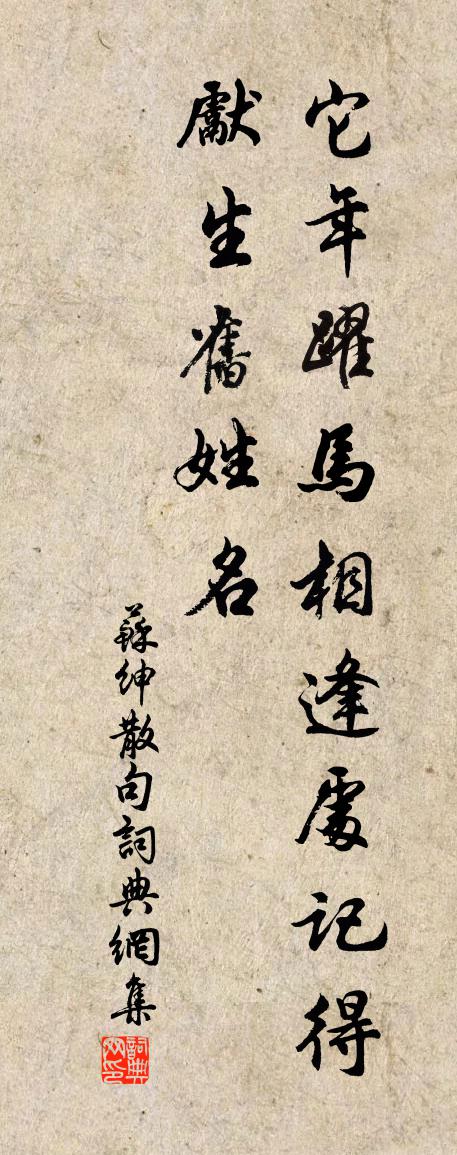 它年躍馬相逢處記得
獻生舊姓名
蘇紳散句詞典網集
詞典網印